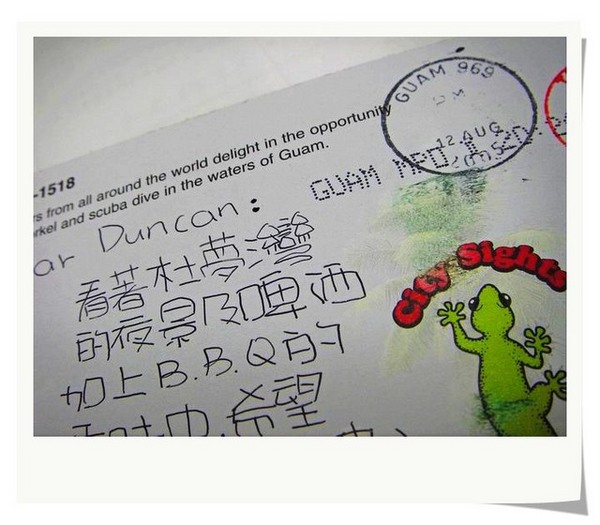 -1518
rs from all around the world delight in the opportunity
rkel and scuba dive in the waters of Guam.
GUAM 969
12 AUG
GUAM MPO
ar Duncan:
看著杜夢灣
的夜景及啤酒
加上B.B.Q的
希望
City Sights